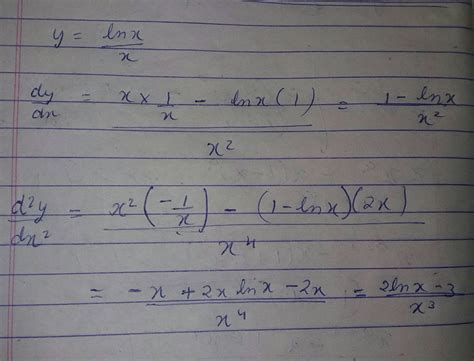 y = lnx/x
dy/dx = (x × 1/x - lnx(1))/x² = (1-lnx)/x²
d²y/dx² = (x²(-1/x) - (1-lnx)(2x))/x⁴
= (-x + 2x lnx - 2x)/x⁴ = (2lnx - 3)/x³